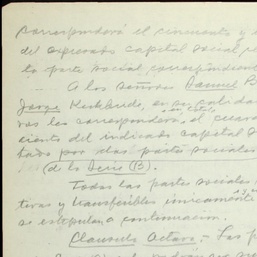 corresponderá el cincuenta y
del expresado capital social
la parte social, correspondiente
A los señores Samuel B
Jorge en su calidad
vos les corresponderá, el cuaren
ciento del indicado capital s
tado por dos partes sociales
(de la Serie (B).
Todas las partes sociales
tivas y transferibles únicamente
se estipula a continuación.
Clausula Octava.- Las p